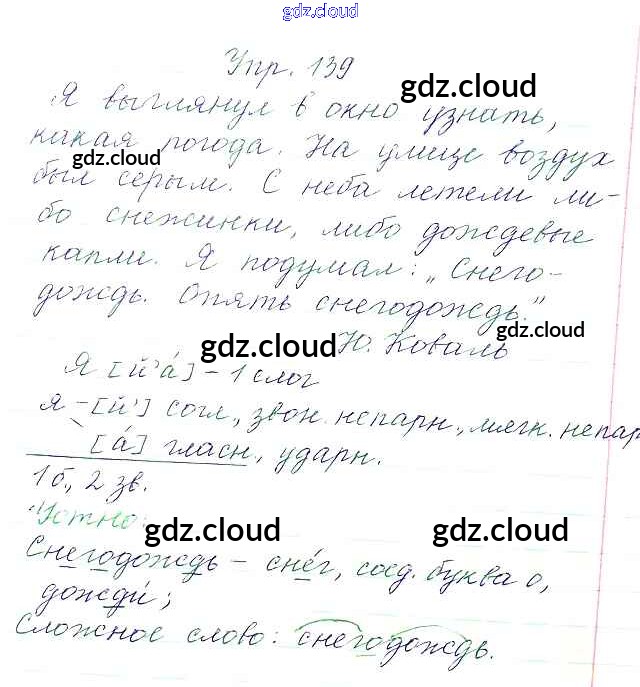 gdz.cloud
Упр. 139
gdz.cloud
Я выглянул в окно узнать,
какая погода. На улице воздух
gdz.cloud
был серым. С неба летели ли-
бо снежинки, либо дождевые
капли. Я подумал: „Снего-
дождь. Опять снегодождь."
gdz.cloud
gdz.cloud Ю. Коваль
Я [й'á] – 1 слог
я – [й'] согл., звон. непарн., мягк. непар
[á] гласн., ударн.
1 б., 2 зв.
Устно:
gdz.cloud gdz.cloud
Снегодождь – снéг, соед. буква о,
дождú;
Сложное слово: снегодождь.